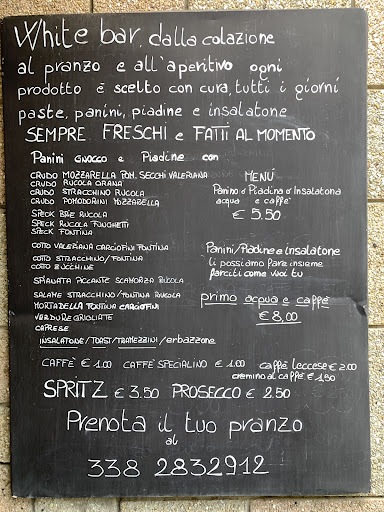 White bar, dalla colazione
al pranzo e all'aperitivo ogni
prodotto è scelto con cura, tutti i giorni
paste, panini, piadine e insalatone
SEMPRE FRESCHI e FATTI AL MOMENTO
PANINI GNOCCO e PIADINE CON
CRUDO MOZZARELLA POM. SECCHI VALERIANA
CRUDO RUCOLA GRANA
CRUDO STRACCHINO RUCOLA
CRUDO POMODORINI MOZZARELLA
SPECK BRIE RUCOLA
SPECK RUCOLA FUNGHETTI
SPECK FONTINA
COTTO VALERIANA CARCIOFINI FONTINA
COTTO STRACCHINO/FONTINA
COTTO ZUCCHINE
SPIANATA PICCANTE SCAMORZA RUCOLA
SALAME STRACCHINO/FONTINA RUCOLA
MORTADELLA FONTINA CARCIOFINI
VERDURE GRIGLIATE
CAPRESE
INSALATONE/TOAST/TRAMEZZINI/erbazzone
MENÙ
Panino o Piadina o Insalatona
acqua e caffè
€ 5,50
Panini/Piadine e insalatone
li possiamo fare insieme
farciti come vuoi tu
primo acqua e caffè
€ 8,00
CAFFÈ € 1.00 CAFFÈ SPECIALINO € 1.00 caffè leccese € 2.00
cremino al caffè € 1,50
SPRITZ € 3.50 PROSECCO € 2,50
Prenota il tuo pranzo
al
338 2832912